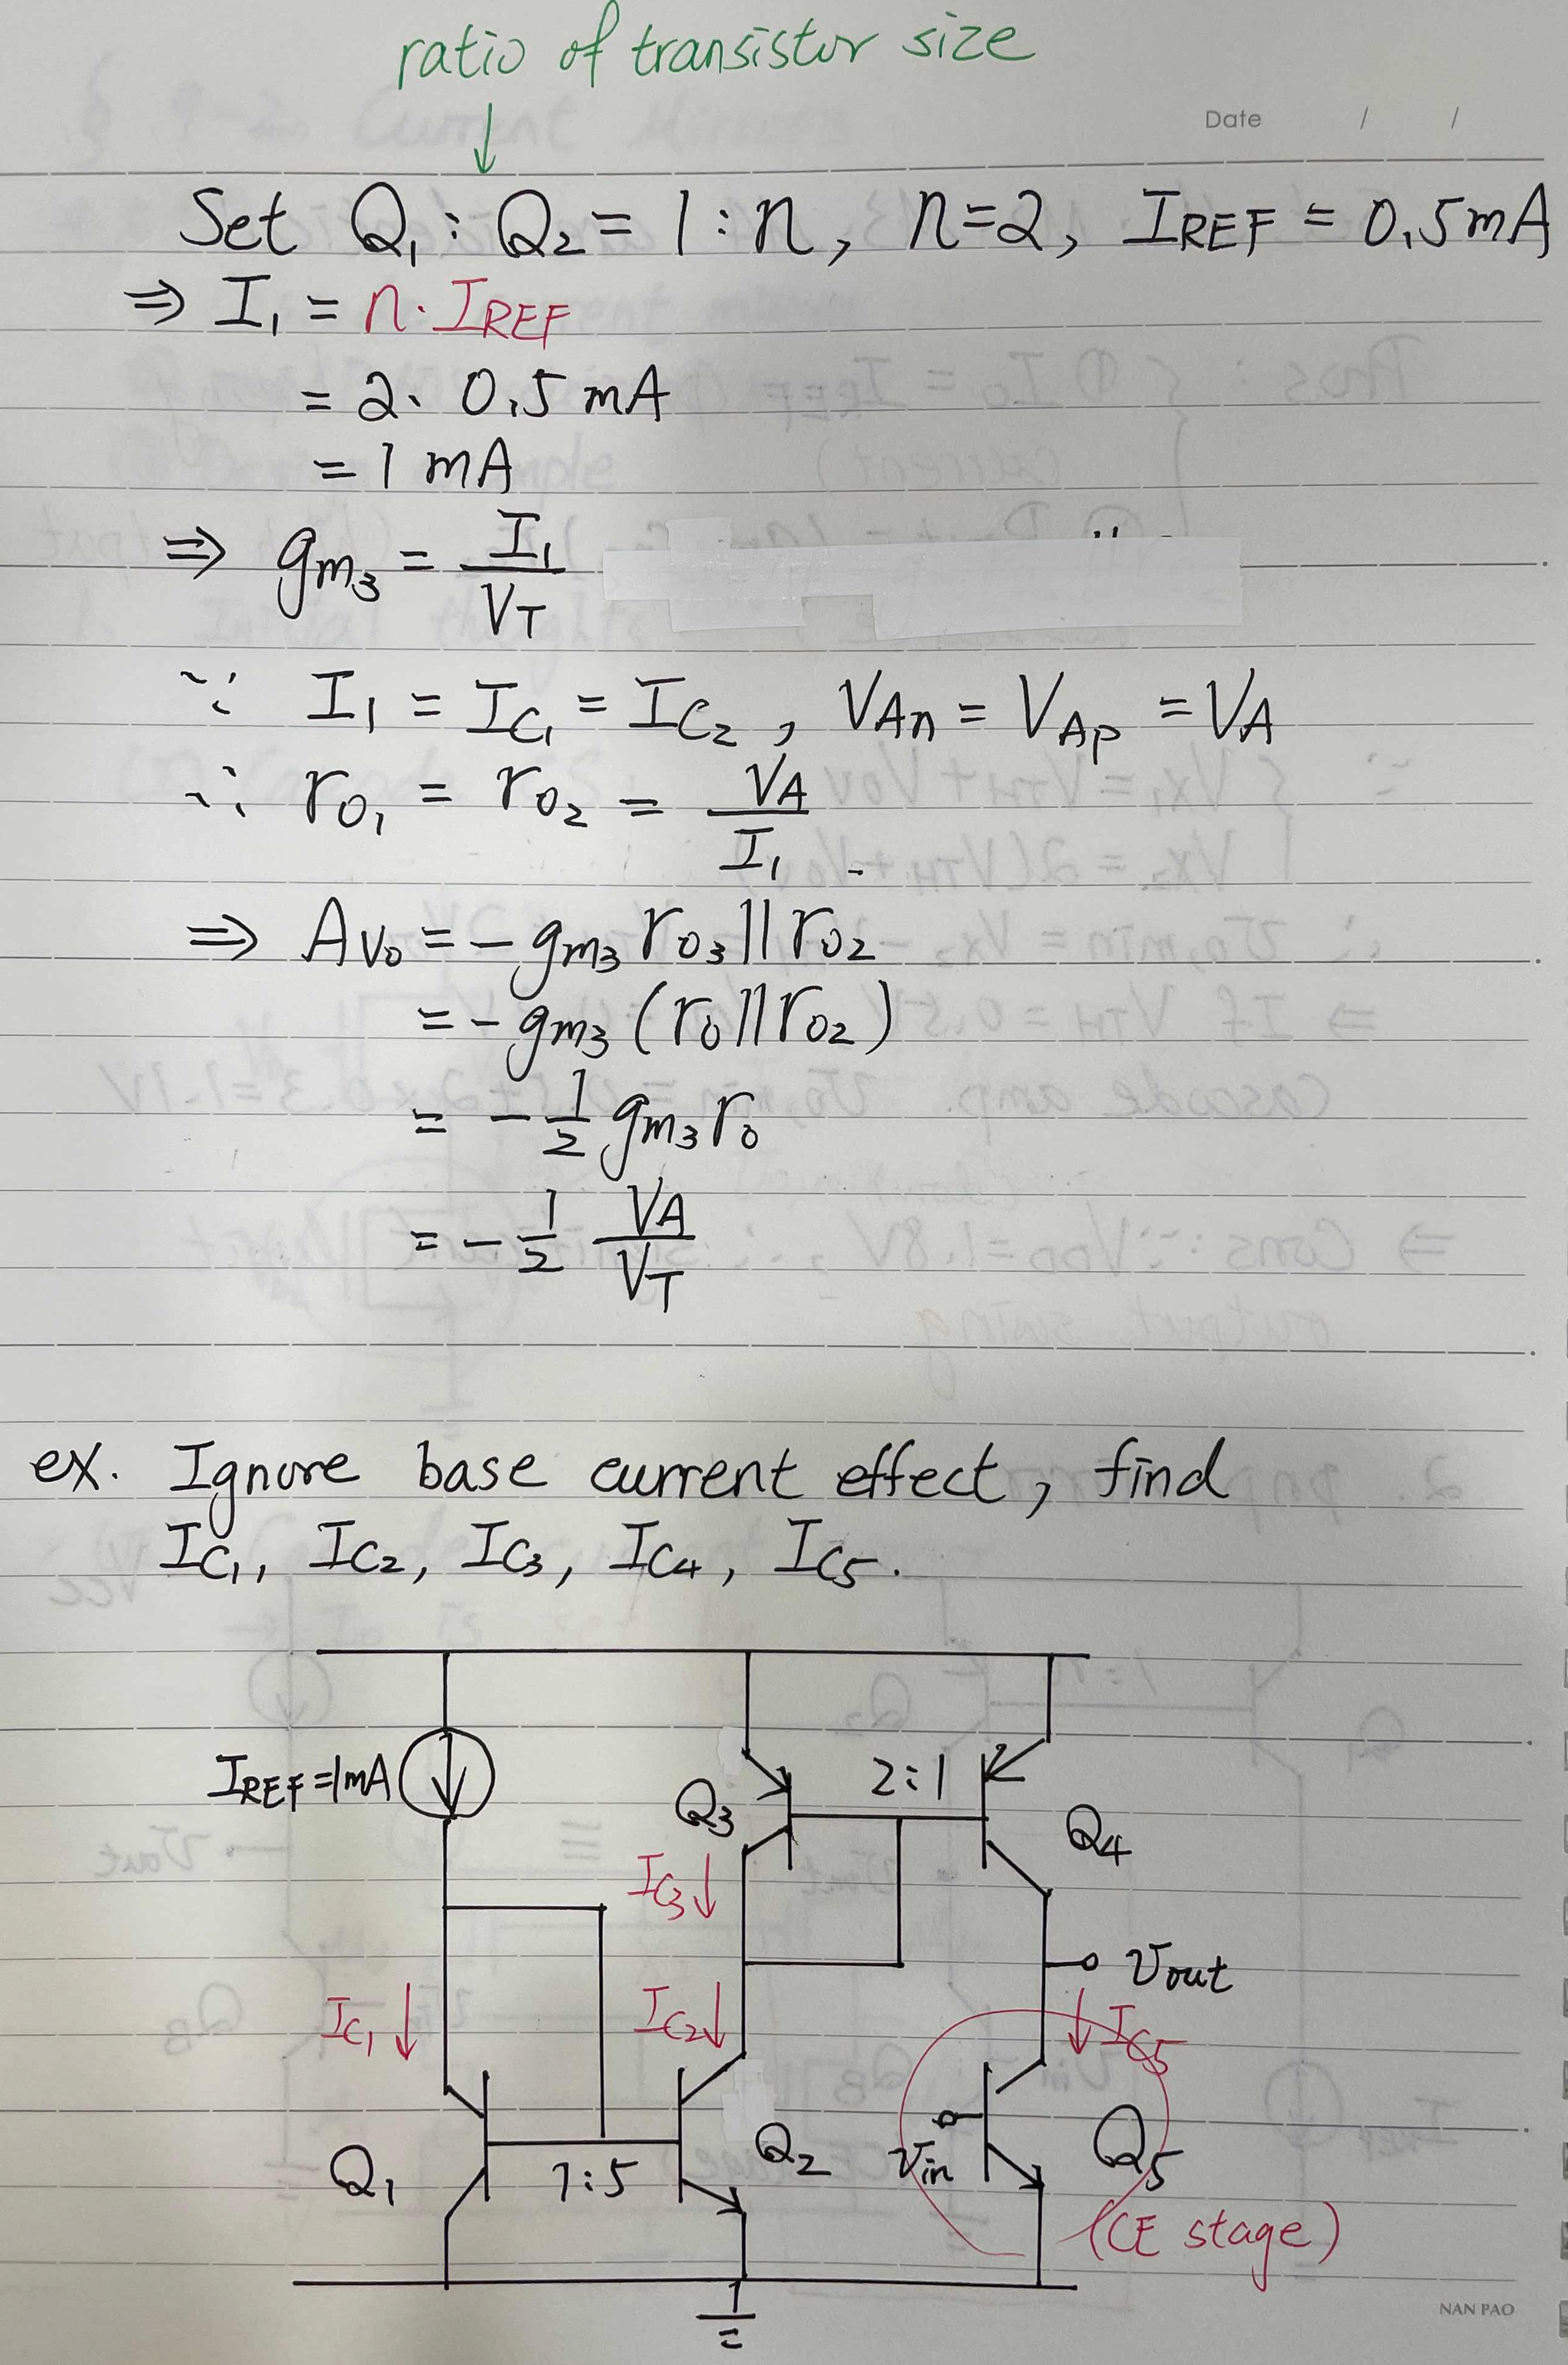 ratio of transistor size
↓
Date / /
Set Q₁ : Q₂ = 1 : n, n=2, I_REF = 0.5mA
⇒ I₁ = n · I_REF
= 2 · 0.5 mA
= 1 mA
⇒ g_m₃ = I₁ / V_T
∵ I₁ = I_C₁ = I_C₂, V_An = V_Ap = V_A
∴ r_O₁ = r_O₂ = V_A / I₁
⇒ A_V₀ = - g_m₃ r_O₃ || r_O₂
= - g_m₃ (r_O || r_O₂)
= - 1/2 g_m₃ r_O
= - 1/2 V_A / V_T
ex. Ignore base current effect, find
I_C₁, I_C₂, I_C₃, I_C₄, I_C₅.
I_REF=1mA
Q₃
2:1
Q₄
I_C₃ ↓
Vout
I_C₁ ↓
I_C₂ ↓
↓ I_C₅
Q₁
1:5
Q₂
Vin
Q₅
(CE stage)
NAN PAO